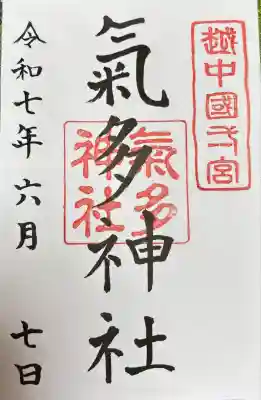 越中國一宮
氣多神社
氣多神社
令和七年六月七日